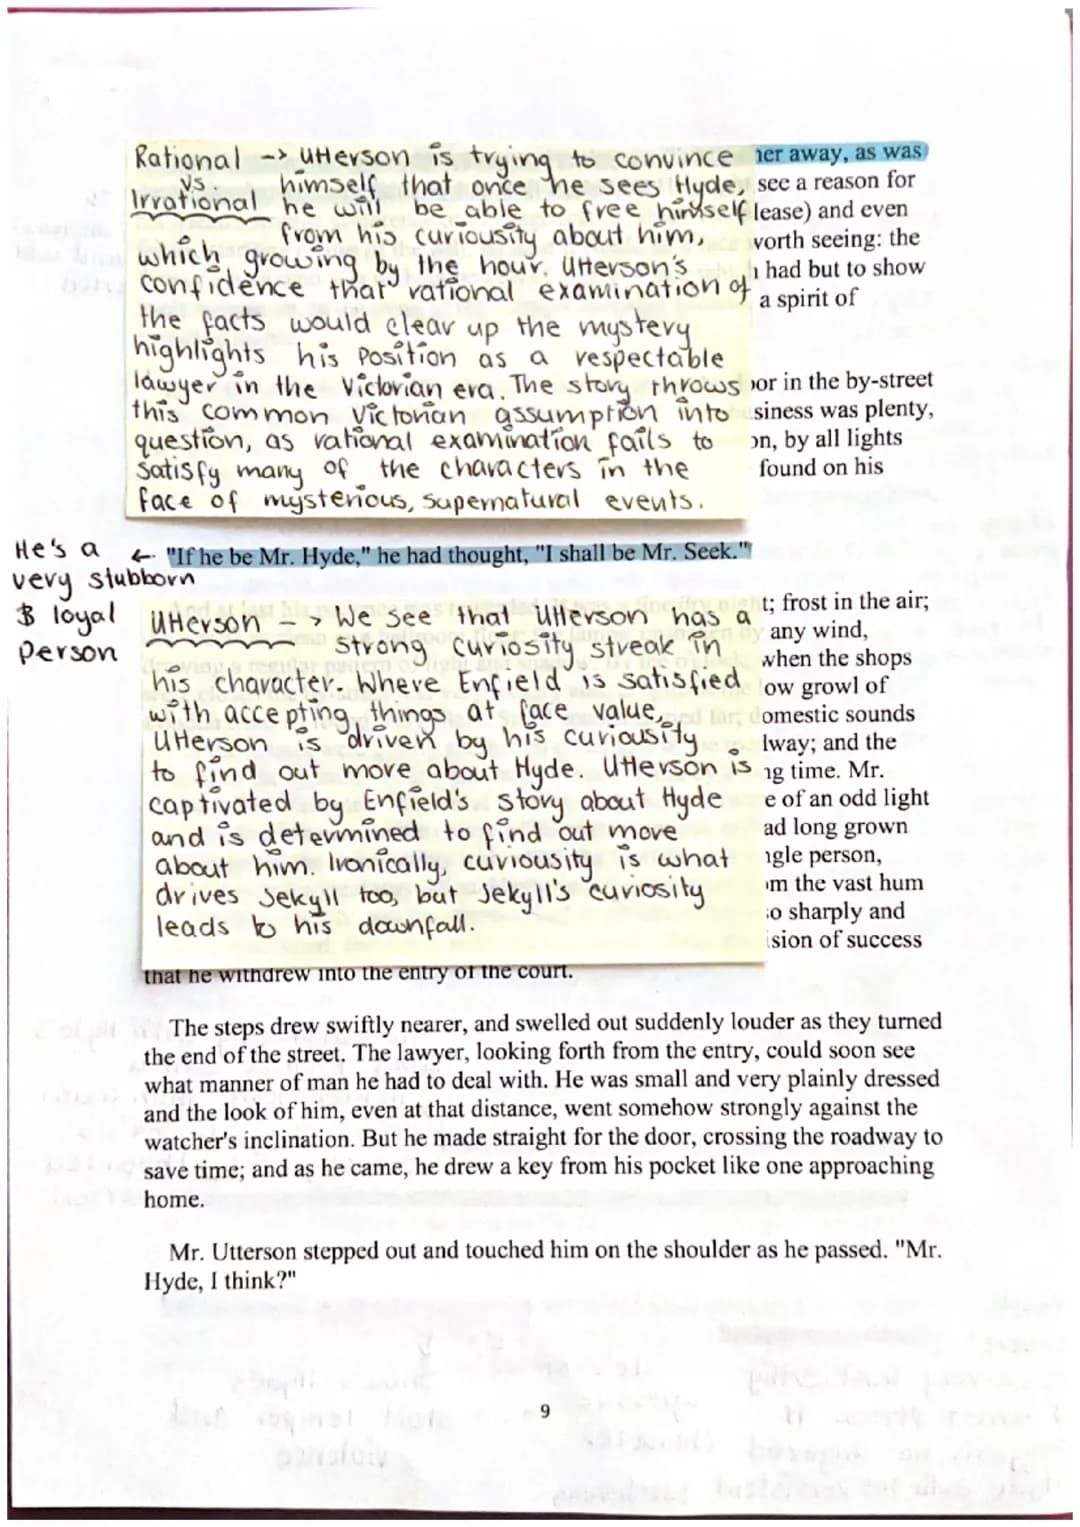 Rational -> Utterson is trying to convince her away, as was
vs. himself that once he sees Hyde, see a reason for
Irrational he will be able to free himself lease) and even
from his curiousity about him, worth seeing: the
which growing by the hour. Utterson's h had but to show
confidence that rational examination of a spirit of
the facts would clear up the mystery
highlights his position as a respectable
lawyer in the Victorian era. The story throws oor in the by-street
this common Victorian assumption into siness was plenty,
question, as rational examination fails to on, by all lights
satisfy many of the characters in the found on his
face of mysterious, supernatural events.
He's a ← "If he be Mr. Hyde," he had thought, "I shall be Mr. Seek."
very stubborn
& loyal
person
t; frost in the air;
Utterson --> We see that Utterson has a any wind,
strong curiosity streak in when the shops
his character. Where Enfield is satisfied ow growl of
with accepting things at face value, domestic sounds
Utterson is driven by his curiousity lway; and the
to find out more about Hyde. Utterson is ng time. Mr.
captivated by Enfield's story about Hyde e of an odd light
and is determined to find out more ad long grown
about him. Ironically, curiousity is what ngle person,
drives Jekyll too, but Jekyll's curiosity om the vast hum
leads to his downfall. so sharply and
ision of success
that he withdrew into the entry of the court.
The steps drew swiftly nearer, and swelled out suddenly louder as they turned
the end of the street. The lawyer, looking forth from the entry, could soon see
what manner of man he had to deal with. He was small and very plainly dressed
and the look of him, even at that distance, went somehow strongly against the
watcher's inclination. But he made straight for the door, crossing the roadway to
save time; and as he came, he drew a key from his pocket like one approaching
home.
Mr. Utterson stepped out and touched him on the shoulder as he passed. "Mr.
Hyde, I think?"
9